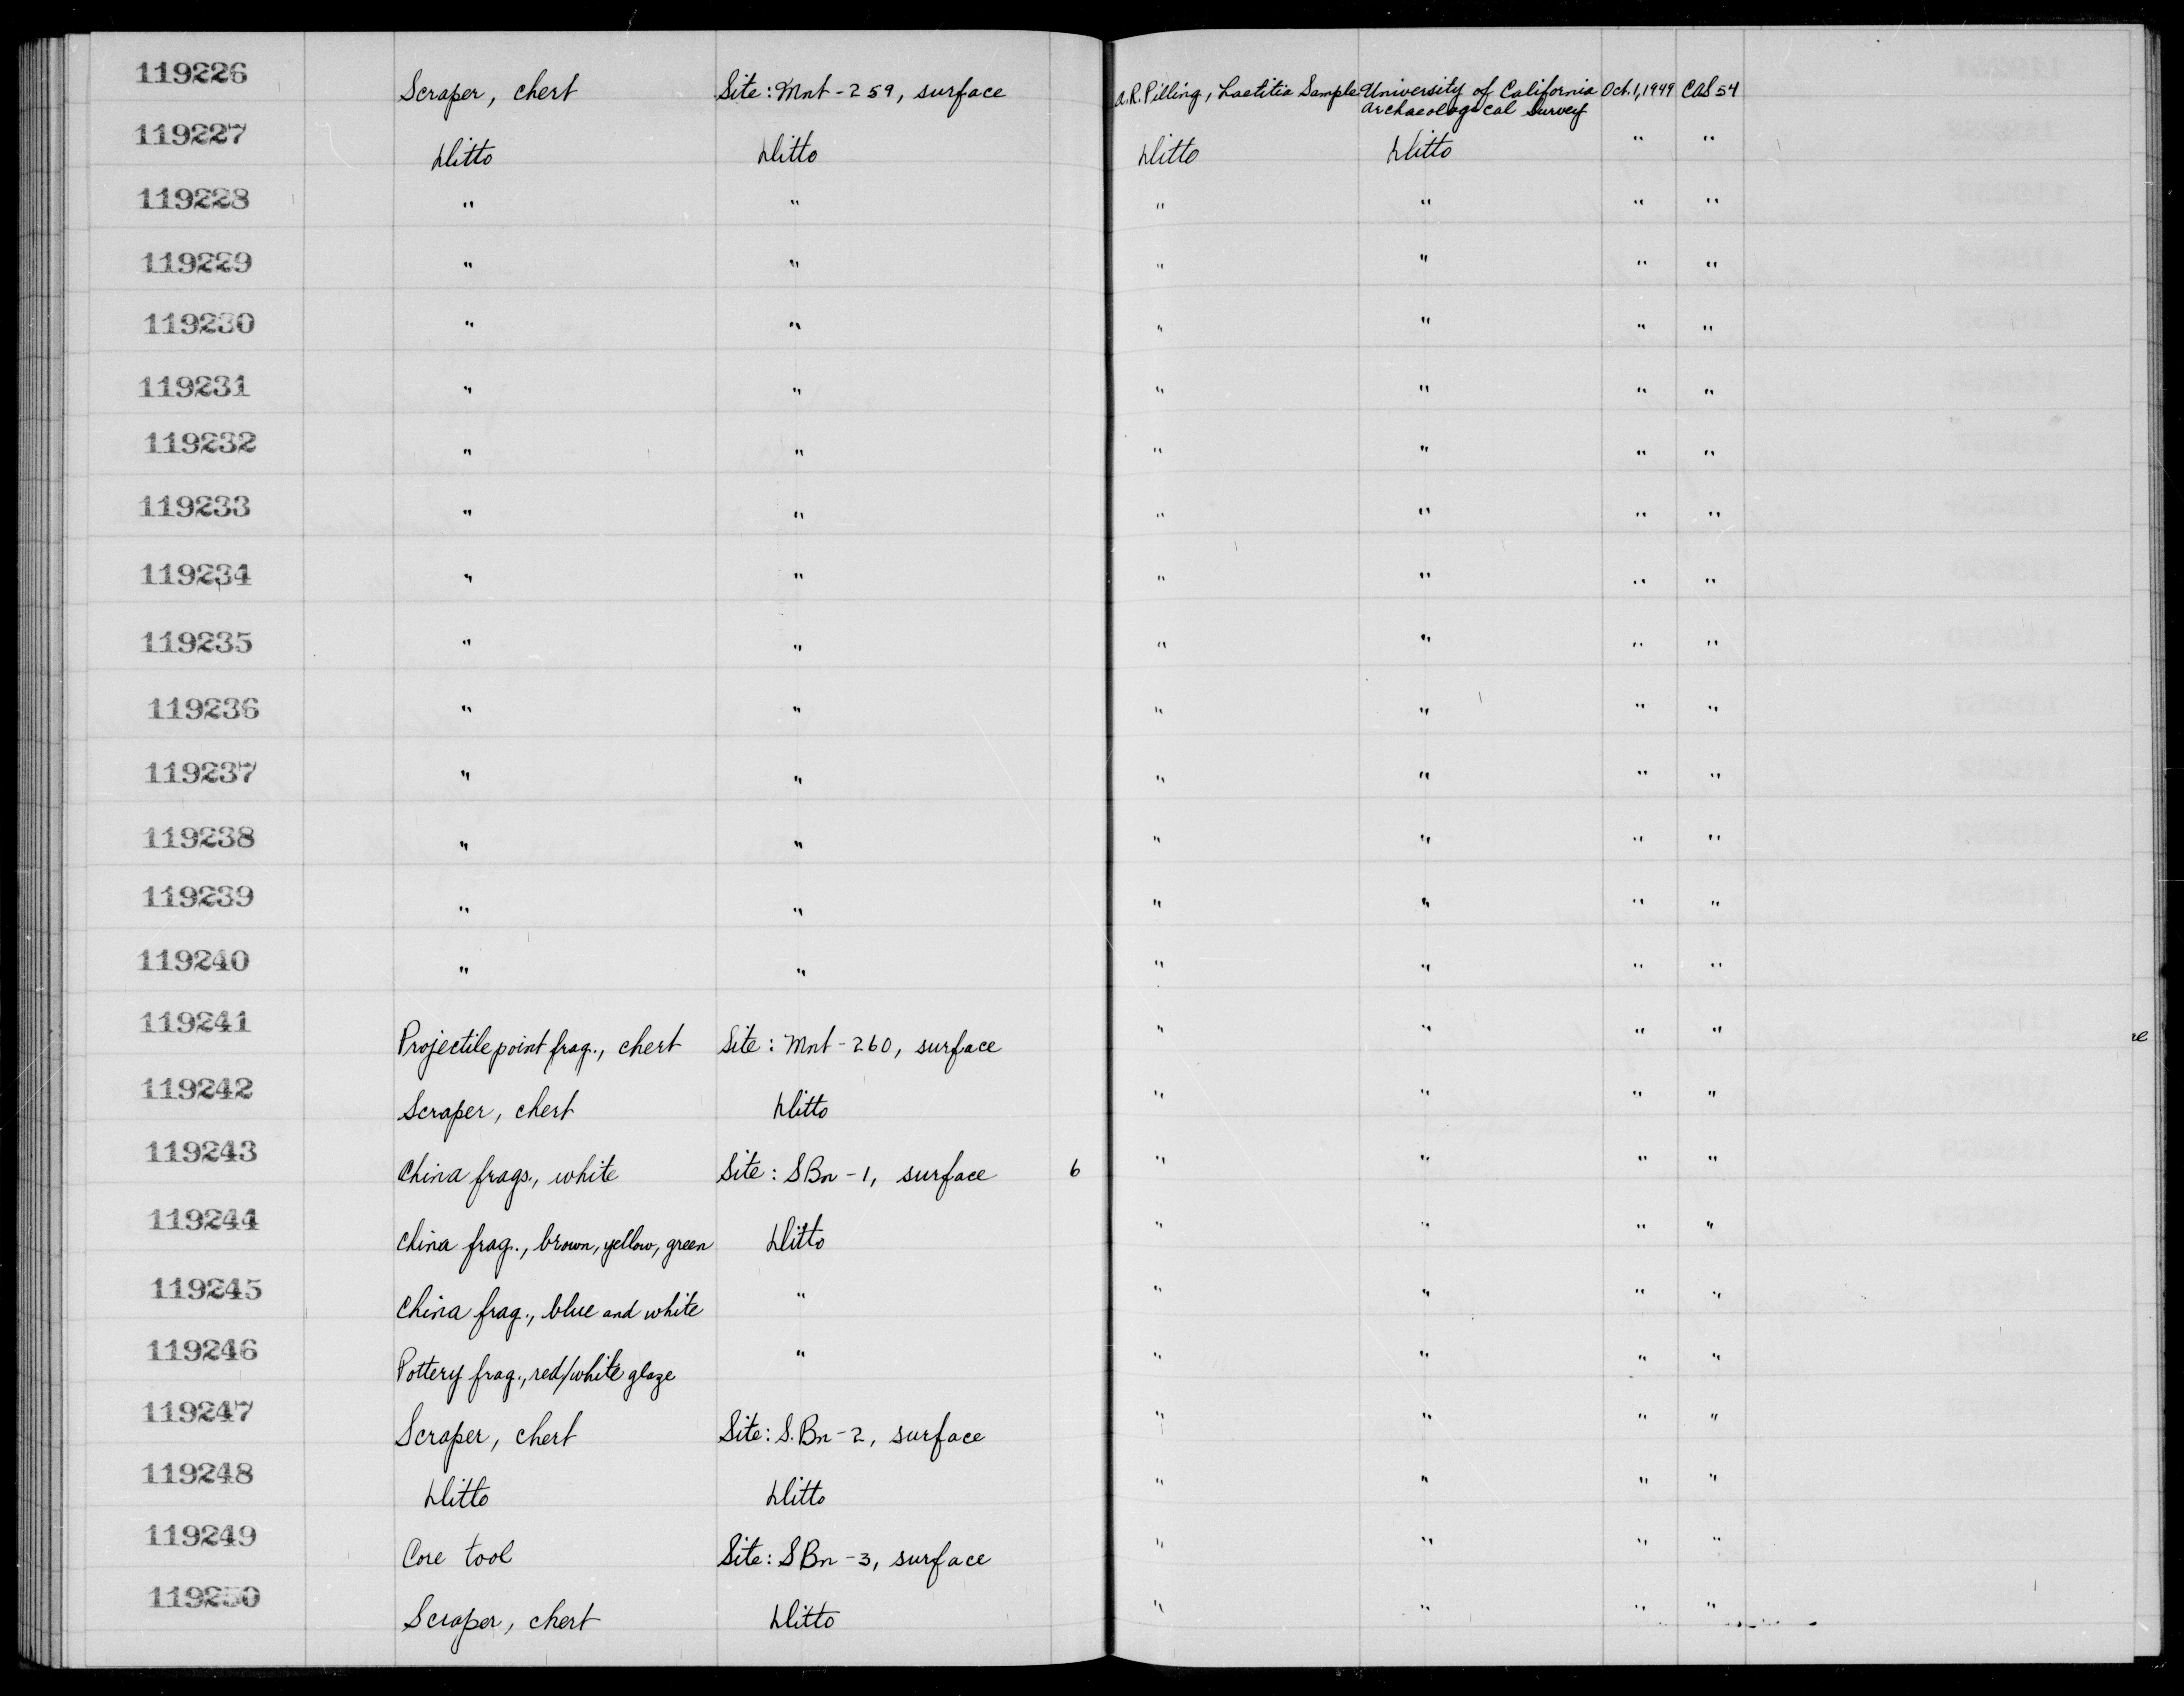 119226 Scraper, chert Site: Mnt-259, surface A.R. Pilling, Laetitia Sample University of California Oct. 1, 1949 CAS 54
Archaeological Survey
119227 Ditto Ditto Ditto Ditto " "
119228 " " " " " "
119229 " " " " " "
119230 " " " " " "
119231 " " " " " "
119232 " " " " " "
119233 " " " " " "
119234 " " " " " "
119235 " " " " " "
119236 " " " " " "
119237 " " " " " "
119238 " " " " " "
119239 " " " " " "
119240 " " " " " "
119241 Projectile point frag., chert Site: Mnt-260, surface " " " "
119242 Scraper, chert Ditto " " " "
119243 China frags., white Site: SBn-1, surface 6 " " " "
119244 China frag., brown, yellow, green Ditto " " " "
119245 China frag., blue and white " " " " "
119246 Pottery frag., red/white glaze " " " " "
119247 Scraper, chert Site: S.Bn-2, surface " " " "
119248 Ditto Ditto " " " "
119249 Core tool Site: SBn-3, surface " " " "
119250 Scraper, chert Ditto " " " "